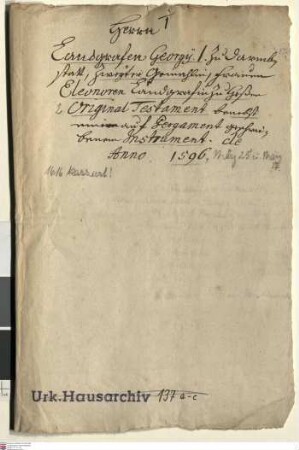 Herrn
Landgrafen Georgij I. zu Darmb,
statt, zweyter Gemahlin, Frauen
Eleonorea Landgräfin zu Heßen
2 Original Testament benebst
auf Pergament geschrie,
benen Instrument. de
Anno. 1596,
1616 kassiert!
Urk. Hausarchiv 137 a-c